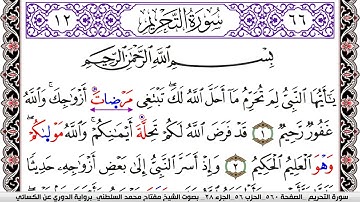 ٦٦ سُورَةُ التَّحْرِيمِ ١٢
بِسْمِ اللَّهِ الرَّحْمَٰنِ الرَّحِيمِ
يَٰٓأَيُّهَا النَّبِيُّ لِمَ تُحَرِّمُ مَآ أَحَلَّ اللَّهُ لَكَ تَبْتَغِي مَرْضَاتَ أَزْوَٰجِكَ وَاللَّهُ
غَفُورٌ رَّحِيمٌ ١ قَدْ فَرَضَ اللَّهُ لَكُمْ تَحِلَّةَ أَيْمَٰنِكُمْ وَاللَّهُ مَوْلَىٰكُمْ
وَهْوَ الْعَلِيمُ الْحَكِيمُ ٢ وَإِذْ أَسَرَّ النَّبِيُّ إِلَىٰ بَعْضِ أَزْوَٰجِهِ حَدِيثًا
سورة التحريم . الصفحة ٥٦٠ الحزب ٥٦ الجزء ٢٨ . بصوت الشيخ مفتاح محمد السلطني . برواية الدوري عن الكسائي